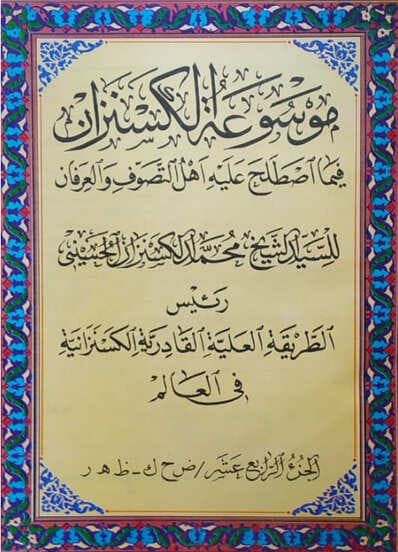 موسوعة الكسنزان
فيما اصطلح عليه أهل التصوف والعرفان
للسيد الشيخ محمد الكسنزان الحسيني
رئيس
الطريقة العلية القادرية الكسنزانية
في العالم
الجزء الرابع عشر / ض ح ك - ظ ه ر